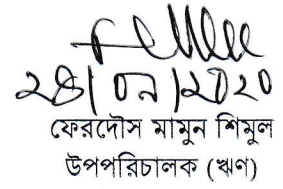 ২৪|০৯|২০২০
ফেরদৌস মামুন শিমুল
উপপরিচালক (ঋণ)